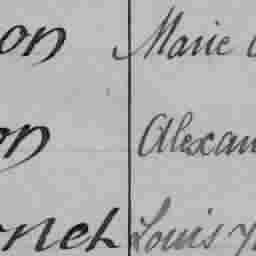 on Marie
on Alexan
nch Louis